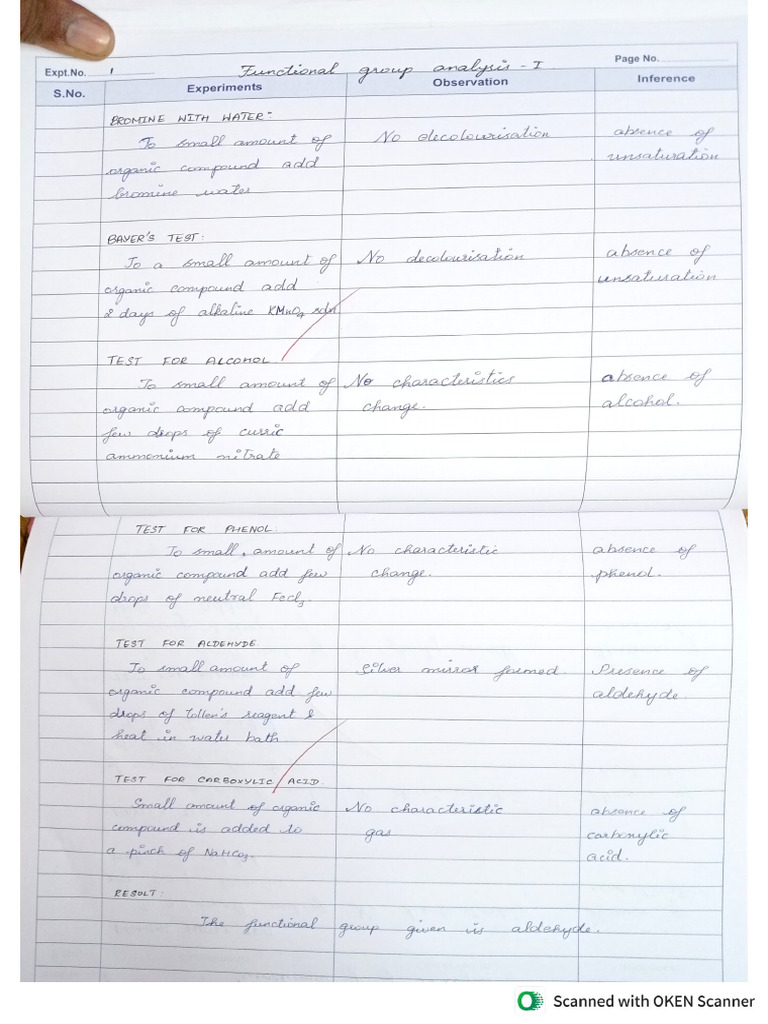 Expt.No. 1 Functional group analysis - I Page No.
S.No. Experiments Observation Inference
BROMINE WITH WATER:
To small amount of No decolourisation absence of
organic compound add unsaturation
bromine water
BAYER'S TEST:
To a small amount of No decolourisation absence of
organic compound add unsaturation
2 days of alkaline KMnO4 soln
TEST FOR ALCOHOL
To small amount of No characteristics absence of
organic compound add change. alcohol.
few drops of curric
ammonium nitrate
TEST FOR PHENOL:
To small, amount of No characteristic absence of
organic compound add few change. phenol.
drops of neutral Fecl3.
TEST FOR ALDEHYDE.
To small amount of Silver mirror formed. Presence of
organic compound add few aldehyde.
drops of Tollen's reagent &
heat in water bath.
TEST FOR CARBOXYLIC ACID.
Small amount of organic No characteristic absence of
compound is added to gas carboxylic
a pinch of NaHCO3. acid.
RESULT:
The functional group given is aldehyde.
Scanned with OKEN Scanner